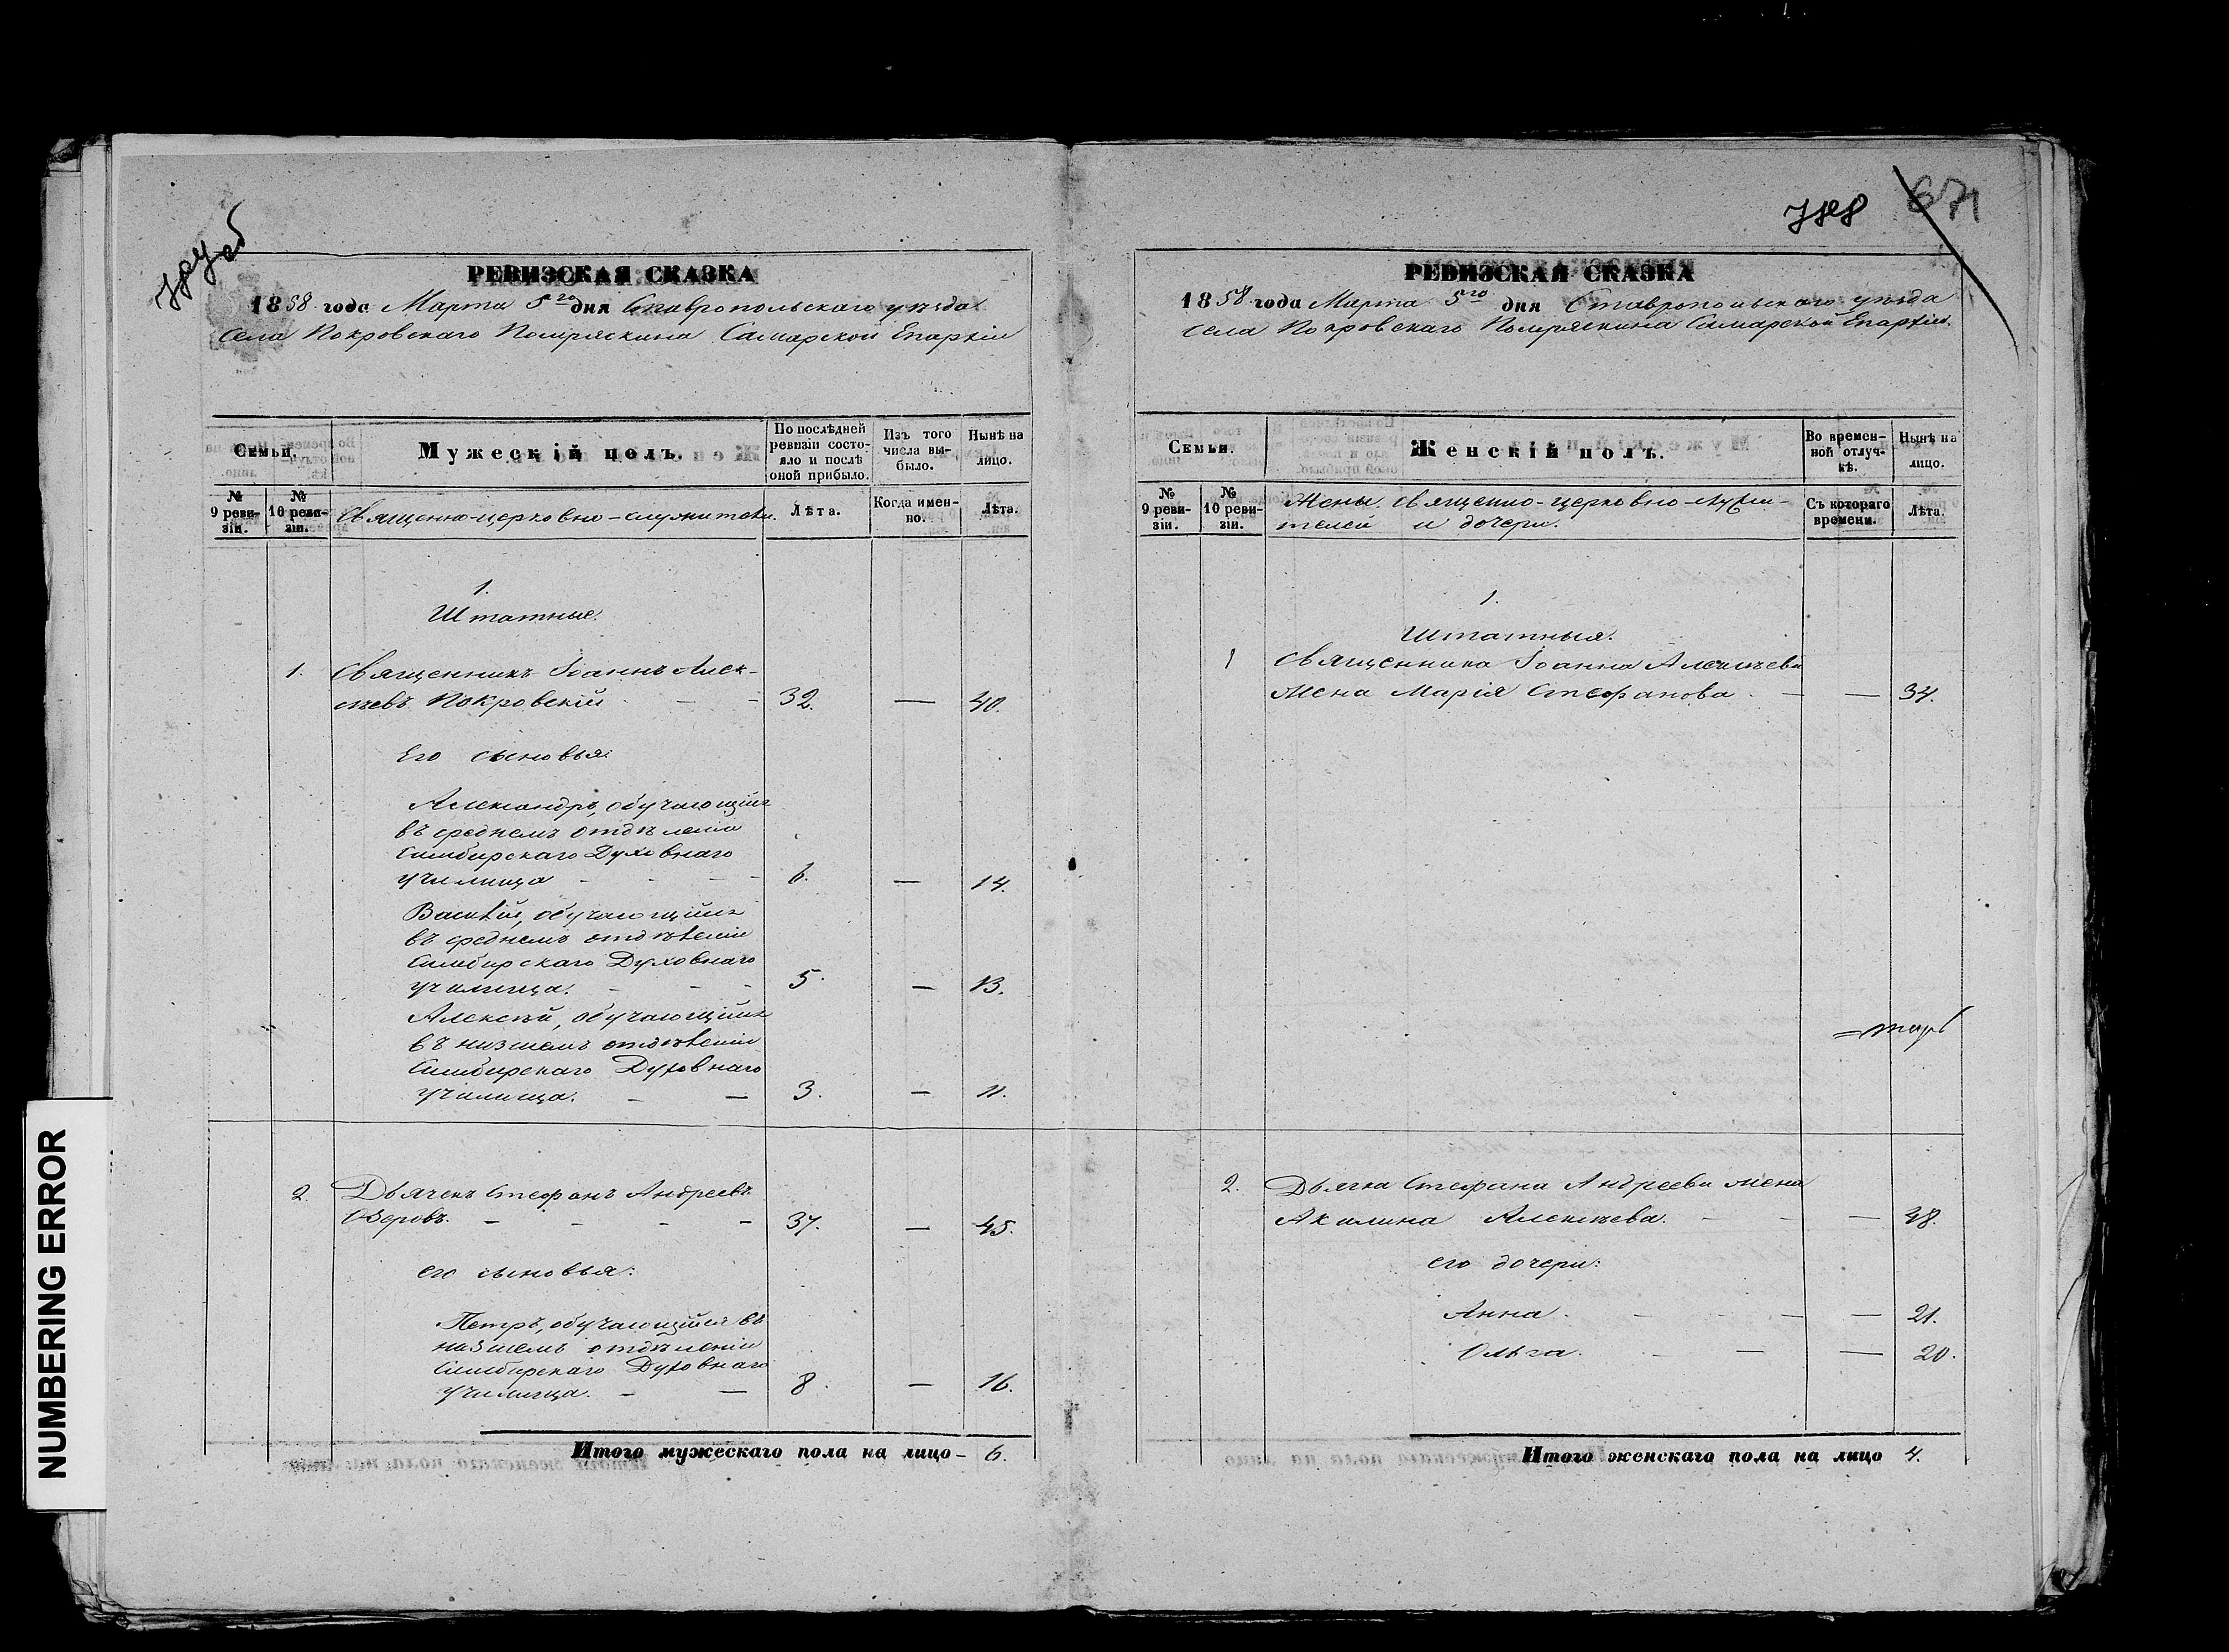 РЕВИЗСКАЯ СКАЗКА
1858 года Марта 5го дня Ставропольскаго уѣзда
Села Покровскаго Помряскина Самарской Епархіи
Семьи.
Мужескій полъ.
По послѣдней ревизіи состояло и послѣ оной прибыло.
Изъ того числа выбыло.
Нынѣ на лицо.
№ 9 ревизіи.
№ 10 ревизіи.
Священно-церковно-служители.
Лѣта.
Когда именно.
Лѣта.
1.
Штатные.
1. Священникъ Іоаннъ Алек-
сѣевъ Покровскій - - 32. — 40.
Его сыновья:
Александръ, обучающійся
въ среднемъ отдѣленіи
Симбирскаго Духовнаго
училища - - - - 6. — 14.
Василій, обучающійся
въ среднемъ отдѣленіи
Симбирскаго Духовнаго
училища. - - - 5. — 13.
Алексѣй, обучающійся
въ низшемъ отдѣленіи
Симбирскаго Духовнаго
училища. - — 3. — 11.
2. Дьячекъ Стефанъ Андреевъ
Озеровъ. - - - - 37. — 45.
его сыновья:
Петръ, обучающійся въ
низшемъ отдѣленіи
Симбирскаго Духовнаго
училища. - — 8. — 16.
Итого мужескаго пола на лицо - 6.
788 671
РЕВИЗСКАЯ СКАЗКА
1858 года Марта 5го дня Ставропольскаго уѣзда
Села Покровскаго Помряскина Самарской Епархіи.
Семьи.
Женскій полъ.
Во временной отлучкѣ.
Нынѣ на лицо.
№ 9 ревизіи.
№ 10 ревизіи.
Жены священно-церковно-служи-
телей и дочери.
Съ котораго времени.
Лѣта.
1.
Штатныя.
1 Священника Іоанна Алексѣева
жена Марія Стефанова. — — 34.
2. Дьячка Стефана Андреева жена
Акилина Алексѣева. - - — 48.
его дочери:
Анна. - - - — 21.
Ольга. - — — 20.
Итого женскаго пола на лицо 4.
NUMBERING ERROR